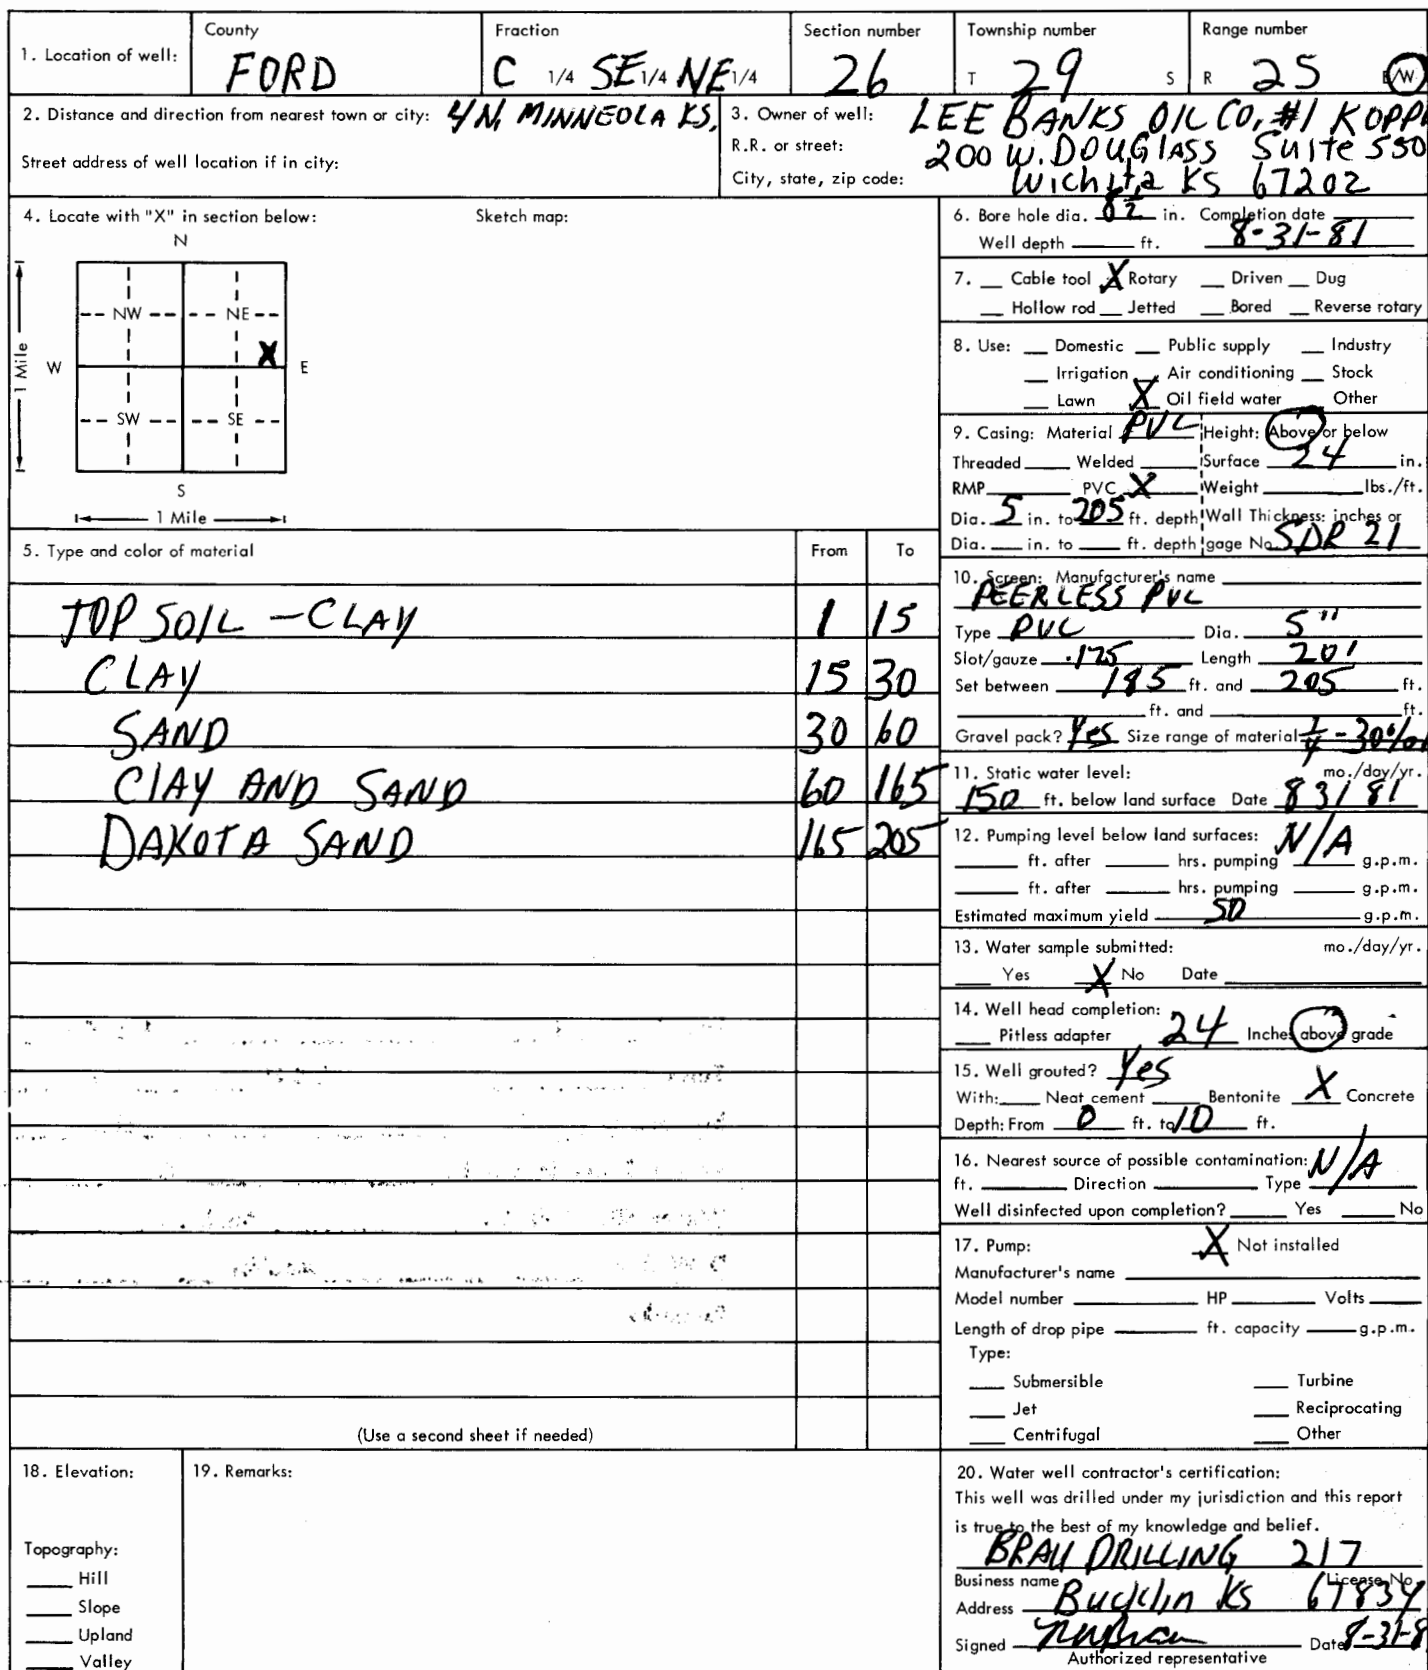 1. Location of well: County FORD Fraction C 1/4 SE 1/4 NE 1/4 Section number 26 Township number T 29 S Range number R 25 E/W
2. Distance and direction from nearest town or city: 4 N. MINNEOLA KS.
Street address of well location if in city:
3. Owner of well: LEE BANKS OIL CO. #1 KOPP
R.R. or street: 200 W. DOUGLASS Suite 550
City, state, zip code: Wichita KS 67202
4. Locate with "X" in section below: Sketch map:
N
NW NE
X
W E
1 Mile
SW SE
S
1 Mile
5. Type and color of material From To
TOP SOIL - CLAY 1 15
CLAY 15 30
SAND 30 60
CLAY AND SAND 60 165
DAKOTA SAND 165 205
(Use a second sheet if needed)
6. Bore hole dia. in. Completion date
Well depth ft. 8-31-81
7. Cable tool X Rotary Driven Dug
Hollow rod Jetted Bored Reverse rotary
8. Use: Domestic Public supply Industry
Irrigation Air conditioning Stock
Lawn X Oil field water Other
9. Casing: Material PVC Height: Above or below
Threaded Welded Surface 24 in.
RMP PVC X Weight lbs./ft.
Dia. 5 in. to 205 ft. depth Wall Thickness: inches or
Dia. in. to ft. depth gage No. SDR 21
10. Screen: Manufacturer's name
PEERLESS PVC
Type PVC Dia. 5"
Slot/gauze .125 Length 20'
Set between 185 ft. and 205 ft.
ft. and ft.
Gravel pack? Yes Size range of material
11. Static water level: mo./day/yr.
150 ft. below land surface Date 8 31 81
12. Pumping level below land surfaces: N/A
ft. after hrs. pumping g.p.m.
ft. after hrs. pumping g.p.m.
Estimated maximum yield 50 g.p.m.
13. Water sample submitted: mo./day/yr.
Yes X No Date
14. Well head completion:
Pitless adapter 24 Inches above grade
15. Well grouted? Yes
With: Neat cement Bentonite X Concrete
Depth: From 0 ft. to 10 ft.
16. Nearest source of possible contamination: N/A
ft. Direction Type
Well disinfected upon completion? Yes No
17. Pump: X Not installed
Manufacturer's name
Model number HP Volts
Length of drop pipe ft. capacity g.p.m.
Type:
Submersible Turbine
Jet Reciprocating
Centrifugal Other
18. Elevation:
Topography:
Hill
Slope
Upland
Valley
19. Remarks:
20. Water well contractor's certification:
This well was drilled under my jurisdiction and this report
is true to the best of my knowledge and belief.
BRAU DRILLING 217
Business name License No.
Address Bucklin KS 67834
Signed Date 8-31-8
Authorized representative